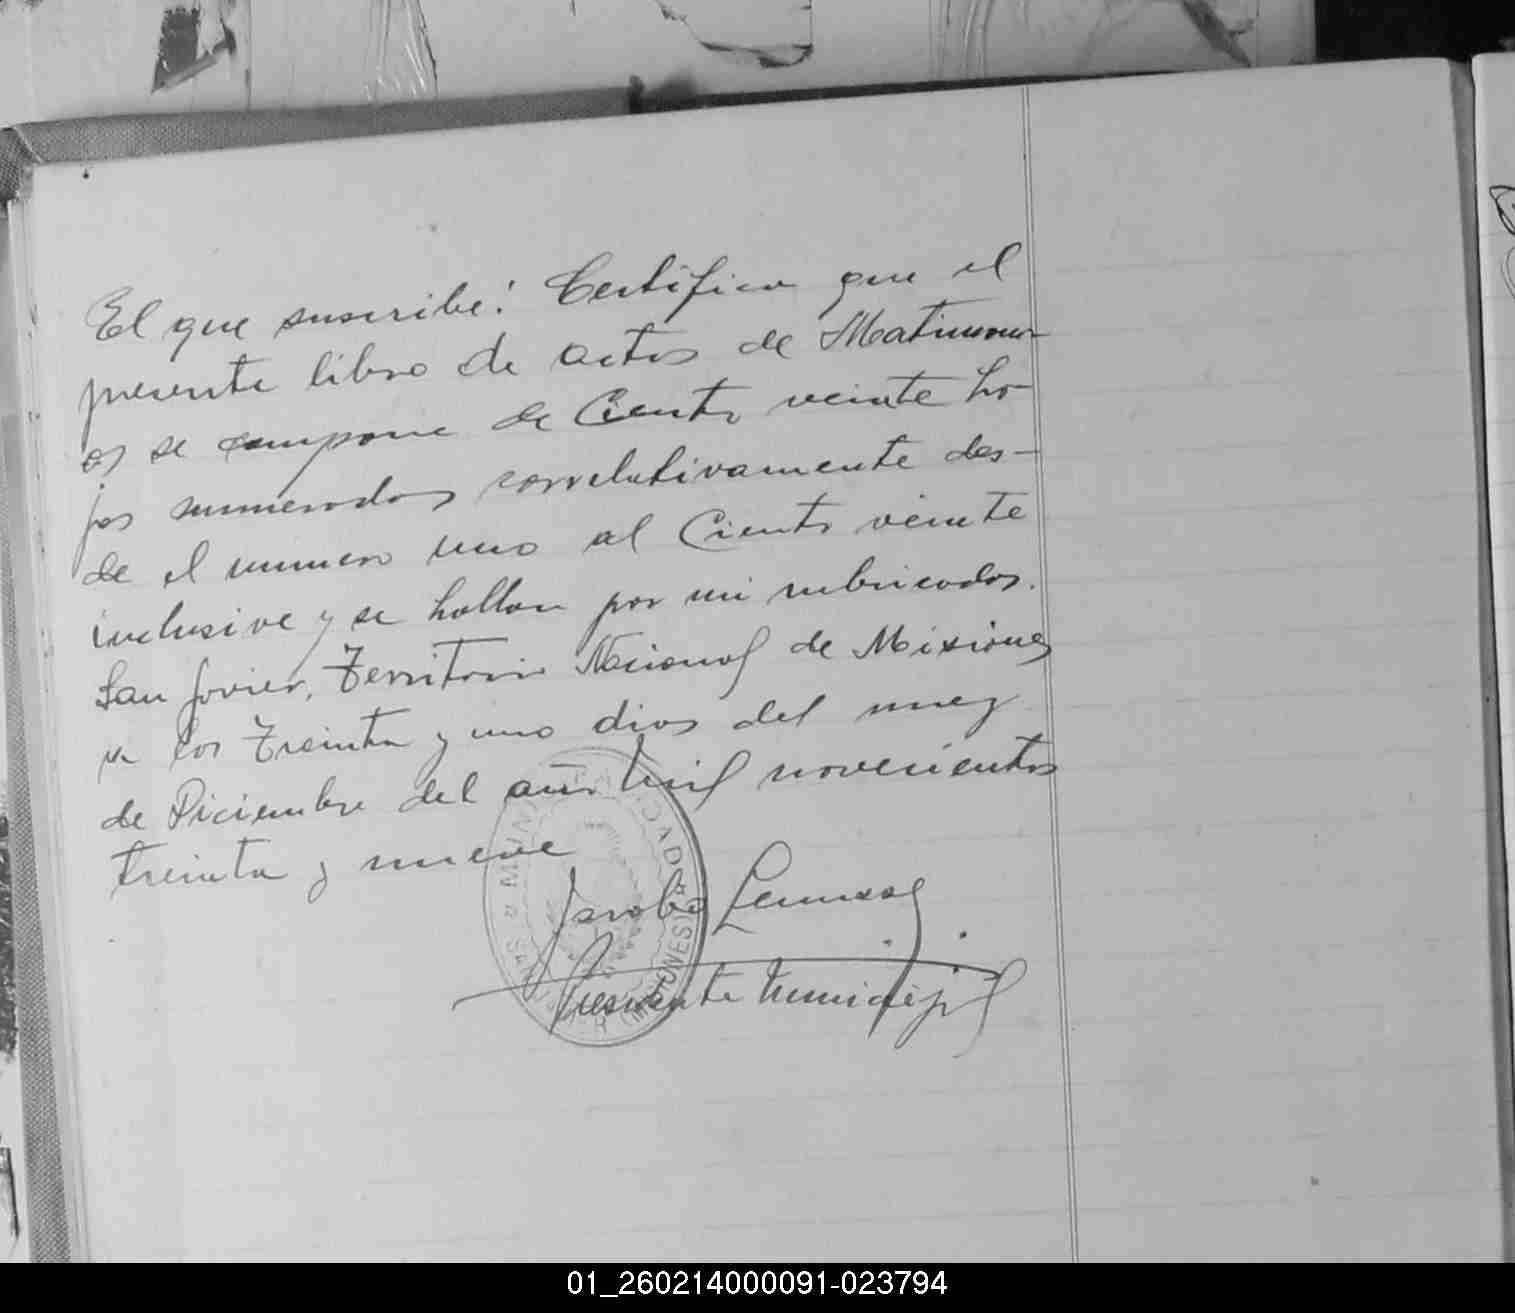 El que suscribe: Certifica que el
presente libro de actos de Matrimoni-
os se compone de Ciento veinte ho-
jas numerados correlativamente des-
de el numero uno al Ciento veinte
inclusive y se hallan por mi rubricados.
San Javier, Territorio Nacional de Misiones
a los Treinta y uno dias del mez
de Diciembre del año mil novecientos
treinta y nueve
Jacobo
Presidente Municipal
MUNICIPALIDAD DE SAN JAVIER (MISIONES)
01_260214000091-023794